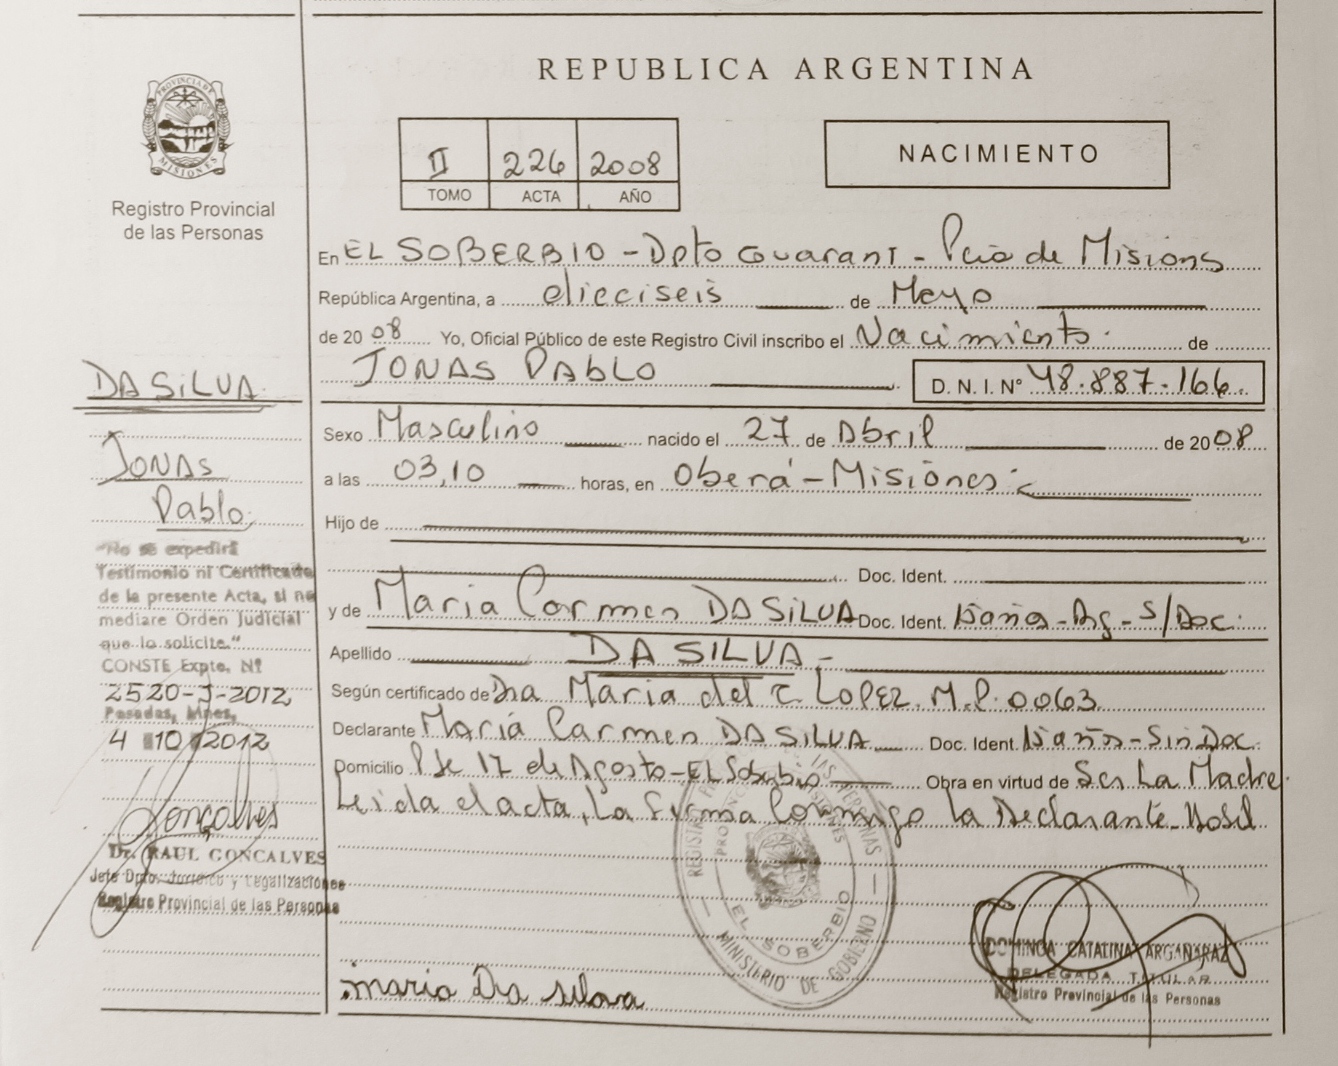 REPUBLICA ARGENTINA
PROVINCIA DE MISIONES
Registro Provincial
de las Personas
II 226 2008
TOMO ACTA AÑO
NACIMIENTO
En EL SOBERBIO - Dpto Guarani - Pcia de Misions
República Argentina, a dieciseis de Mayo
de 2008 Yo, Oficial Público de este Registro Civil inscribo el Nacimiento de
JONAS PABLO D. N. I. Nº 48.887.166
Sexo Masculino nacido el 27 de Abril de 2008
a las 03,10 horas, en Oberá - Misiones
Hijo de
Doc. Ident.
y de Maria Carmen DA SILVA Doc. Ident. 15 años - Arg - S/Doc.
Apellido DA SILVA -
Según certificado de Dra Maria del C LOPEZ. M.P. 0063
Declarante María Carmen DA SILVA Doc. Ident. 15 años - Sin Doc.
Domicilio 17 de Agosto - EL Soberbio Obra en virtud de Ser La Madre
Leida el acta, La Firma Conmigo La Declarante
DA SILVA
JONAS
Pablo
"No se expedirá
Testimonio ni Certificado
de la presente Acta, si no
mediare Orden Judicial
que lo solicite."
CONSTE Expte. Nº
2520-J-2012
Posadas, Mnes,
4 10 2012
Gonçalves
Dr. RAUL GONCALVES
Jefe Dpto. Jurídico y Legalizaciones
Registro Provincial de las Personas
MINISTERIO DE GOBIERNO
EL SOBERBIO
maria Da silva
DOMINGA CATALINA ARGAÑARAZ
DELEGADA TITULAR
Registro Provincial de las Personas